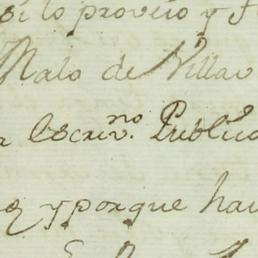 si lo proveio y f
Malo de Villav
a Escriv.no Publico
y porque hav